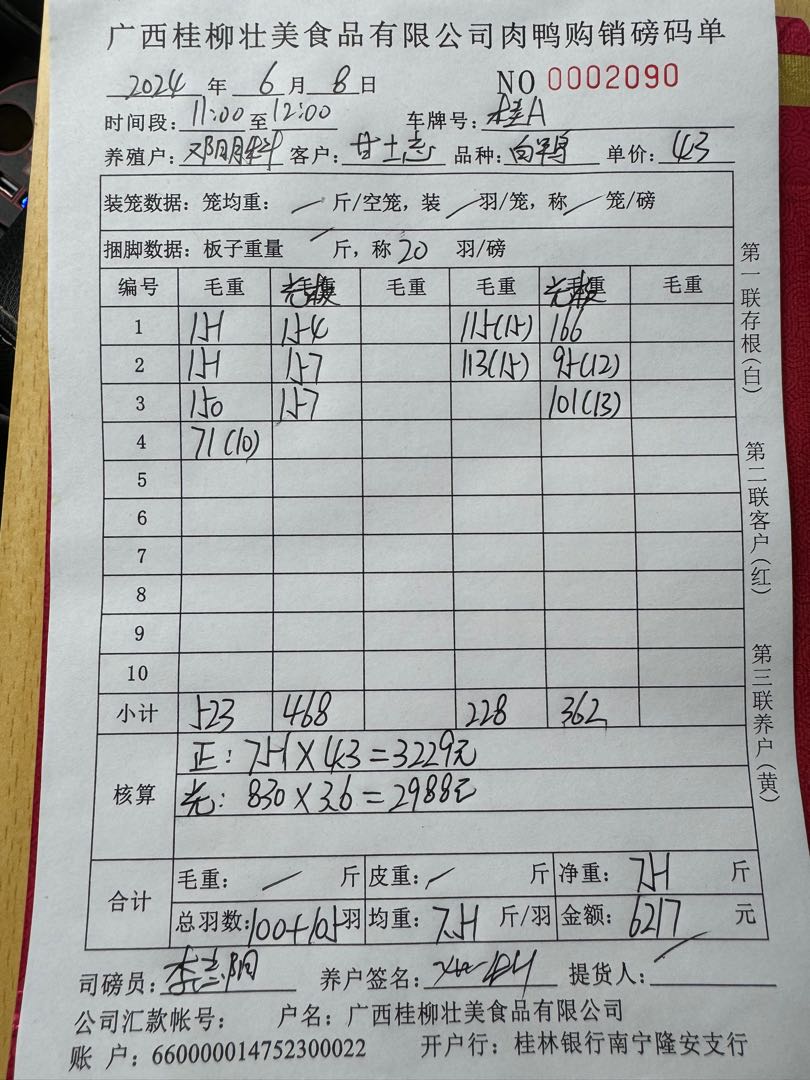 广西桂柳壮美食品有限公司肉鸭购销磅码单
2024 年 6 月 8 日 NO 0002090
时间段: 11:00 至 12:00 车牌号: 桂A
养殖户: 邓阴 客户: 甘士志 品种: 白鸭 单价: 4.3
装笼数据: 笼均重: / 斤/空笼, 装 / 羽/笼, 称 / 笼/磅
捆脚数据: 板子重量 / 斤, 称 20 羽/磅
编号 毛重 毛重 毛重 毛重
1 151 154 115(15) 166
2 151 157 113(15) 95(12)
3 150 157 101(13)
4 71(10)
5
6
7
8
9
10
小计 523 468 228 362
核算
正: 751×4.3=3229元
光: 830×3.6=2988元
合计
毛重: / 斤 皮重: / 斤 净重: 751 斤
总羽数: 100+105 羽 均重: 7.51 斤/羽 金额: 6217 元
司磅员: 李志阴 养户签名: 提货人: /
公司汇款帐号: 户名: 广西桂柳壮美食品有限公司
账 户: 660000014752300022 开户行: 桂林银行南宁隆安支行
第一联存根(白)
第二联客户(红)
第三联养户(黄)